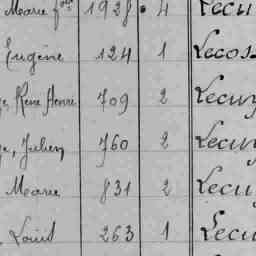 Marie fçois 1928 4 Lecu
Eugène 124 1 Lecos
René Henri 709 2 Lecuy
Julien 760 2 Lecuy
Marie 831 2 Lecuy
Louis 263 1 Lecu